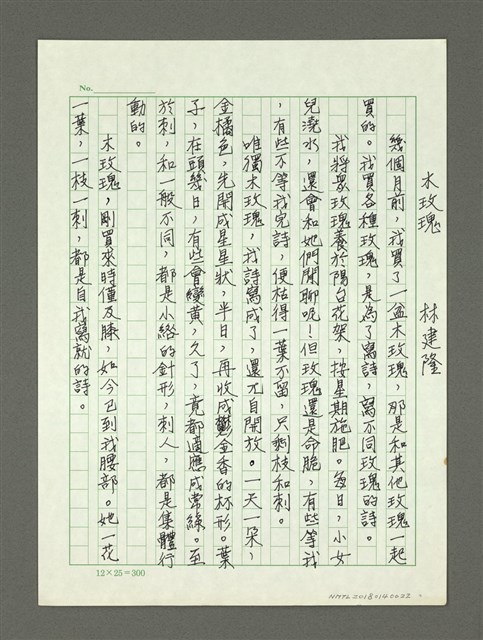 No.
木玫瑰　林建隆
幾個月前，我買了一盆木玫瑰，那是和其他玫瑰一起
買的。我買各種玫瑰，是為了寫詩，寫不同玫瑰的詩。
我將眾玫瑰養於陽台花架，按星期施肥。每日，小女
兒澆水，還會和她們閒聊呢！但玫瑰還是命脆，有些等我
，有些不等我完詩，便枯得一葉不留，只剩枝和刺。
唯獨木玫瑰，我詩寫成了，還兀自開放。一天一朵，
金橘色，先開成星星狀，半日，再收成鬱金香的杯形。葉
子，在頭幾日，有些會變黃，久了，竟都適應成常綠。至
於刺，和一般不同，都是小綹的針形，刺人，都是集體行
動的。
木玫瑰，剛買來時僅及膝，如今已到我腰部。她一花
一葉，一枝一刺，都是自我寫就的詩。
12×25=300
NMTL20180140022